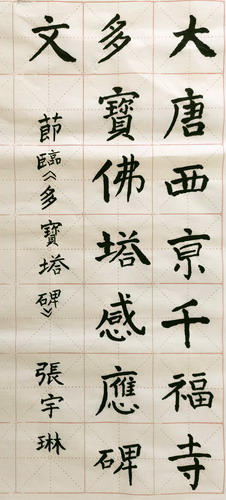 大唐西京千福寺
多寶佛塔感應碑
文
節臨《多寶塔碑》 張宇琳